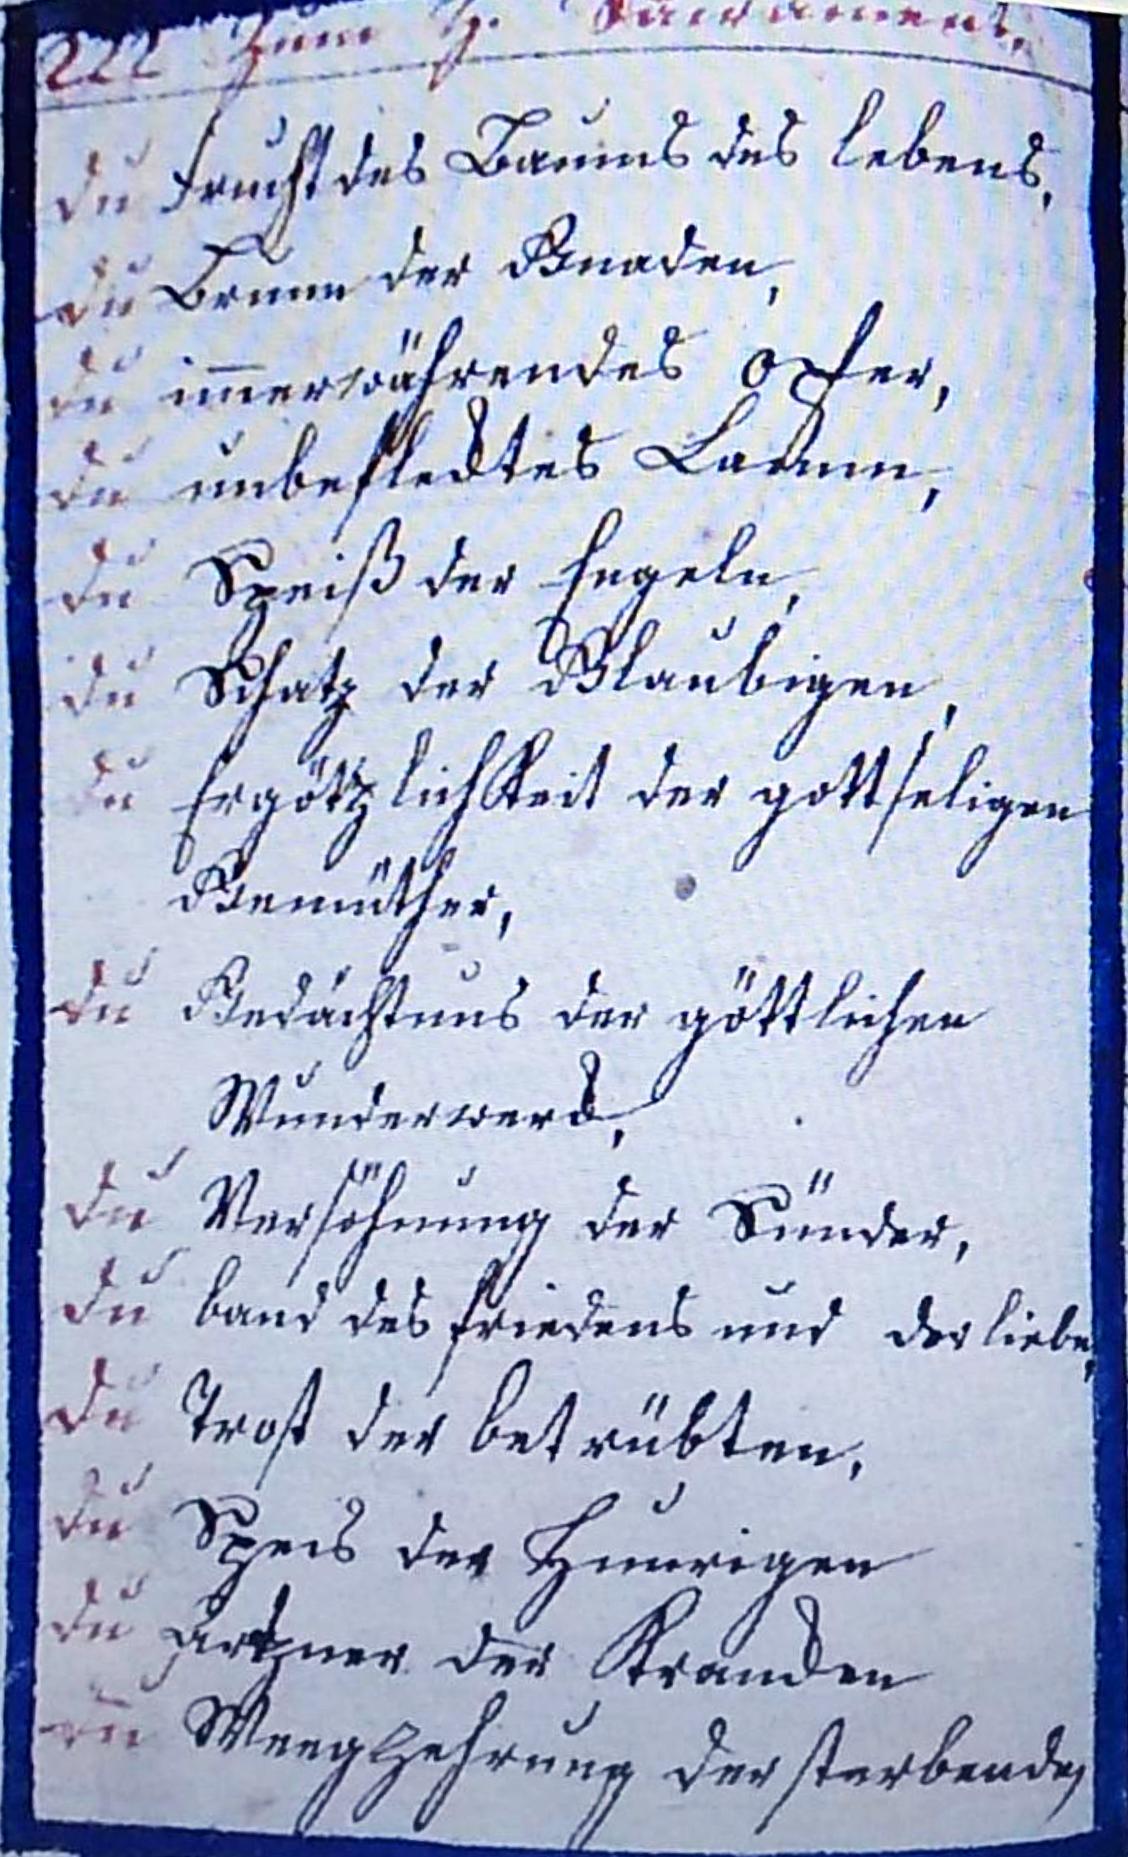 222 Zum H. Sacrament.
du frucht des Baums des lebens,
du Brunn der Gnaden,
du im̄erwährendes opfer,
du unbeflecktes Lamm,
du Speiß der Engeln,
du Schatz der Glaubigen,
du Ergötzlichkeit der gottseligen
Gemüther,
du Gedächtnus der göttlichen
Wunderwerck,
du Versöhnung der Sünder,
du band des friedens und der liebe,
du Trost der betrübten,
du Speis der Hunrigen
du artzner der Krancken
du Weegzehrung der sterbenden